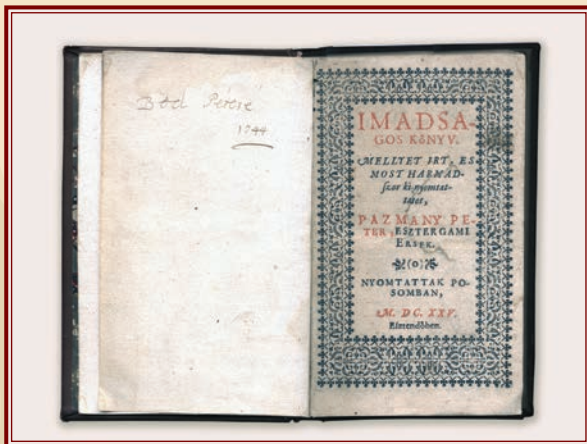 Bod Péteré
1744
IMADSA-
GOS KŐNYV.
MELLYET IRT, ES
MOST HARMAD-
szor ki nyomtat-
tatot,
PAZMANY PE-
TER, ESZTERGAMI
ERSEK.
(o)
NYOMTATTAK PO-
SOMBAN,
M. DC. XXV.
Esztendőbben.